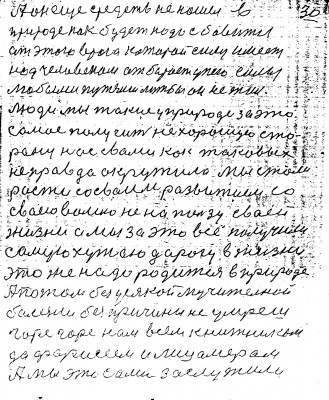 А он еще средств не нашли в 36
природе как будет надо избавится
от этого врага который силу имеет
над человеком отбирает у него силы
любыми путями лишь бы он не жил.
Люди мы такие у природе за это
самое получит не хорошую сто
рону нас с вами как таковых
неправда окружила. Мы стали
расти со своим развитием со
своею волею не на пользу своей
жизни а мы за это все получили
самую худую дорогу в жизни
это же надо родится в природе
А потом без всякой мучительной
болезни без причины не умрешь
горе горе нам всем книжникам
да фарисеем и лицемерам
А мы это сами заслужили